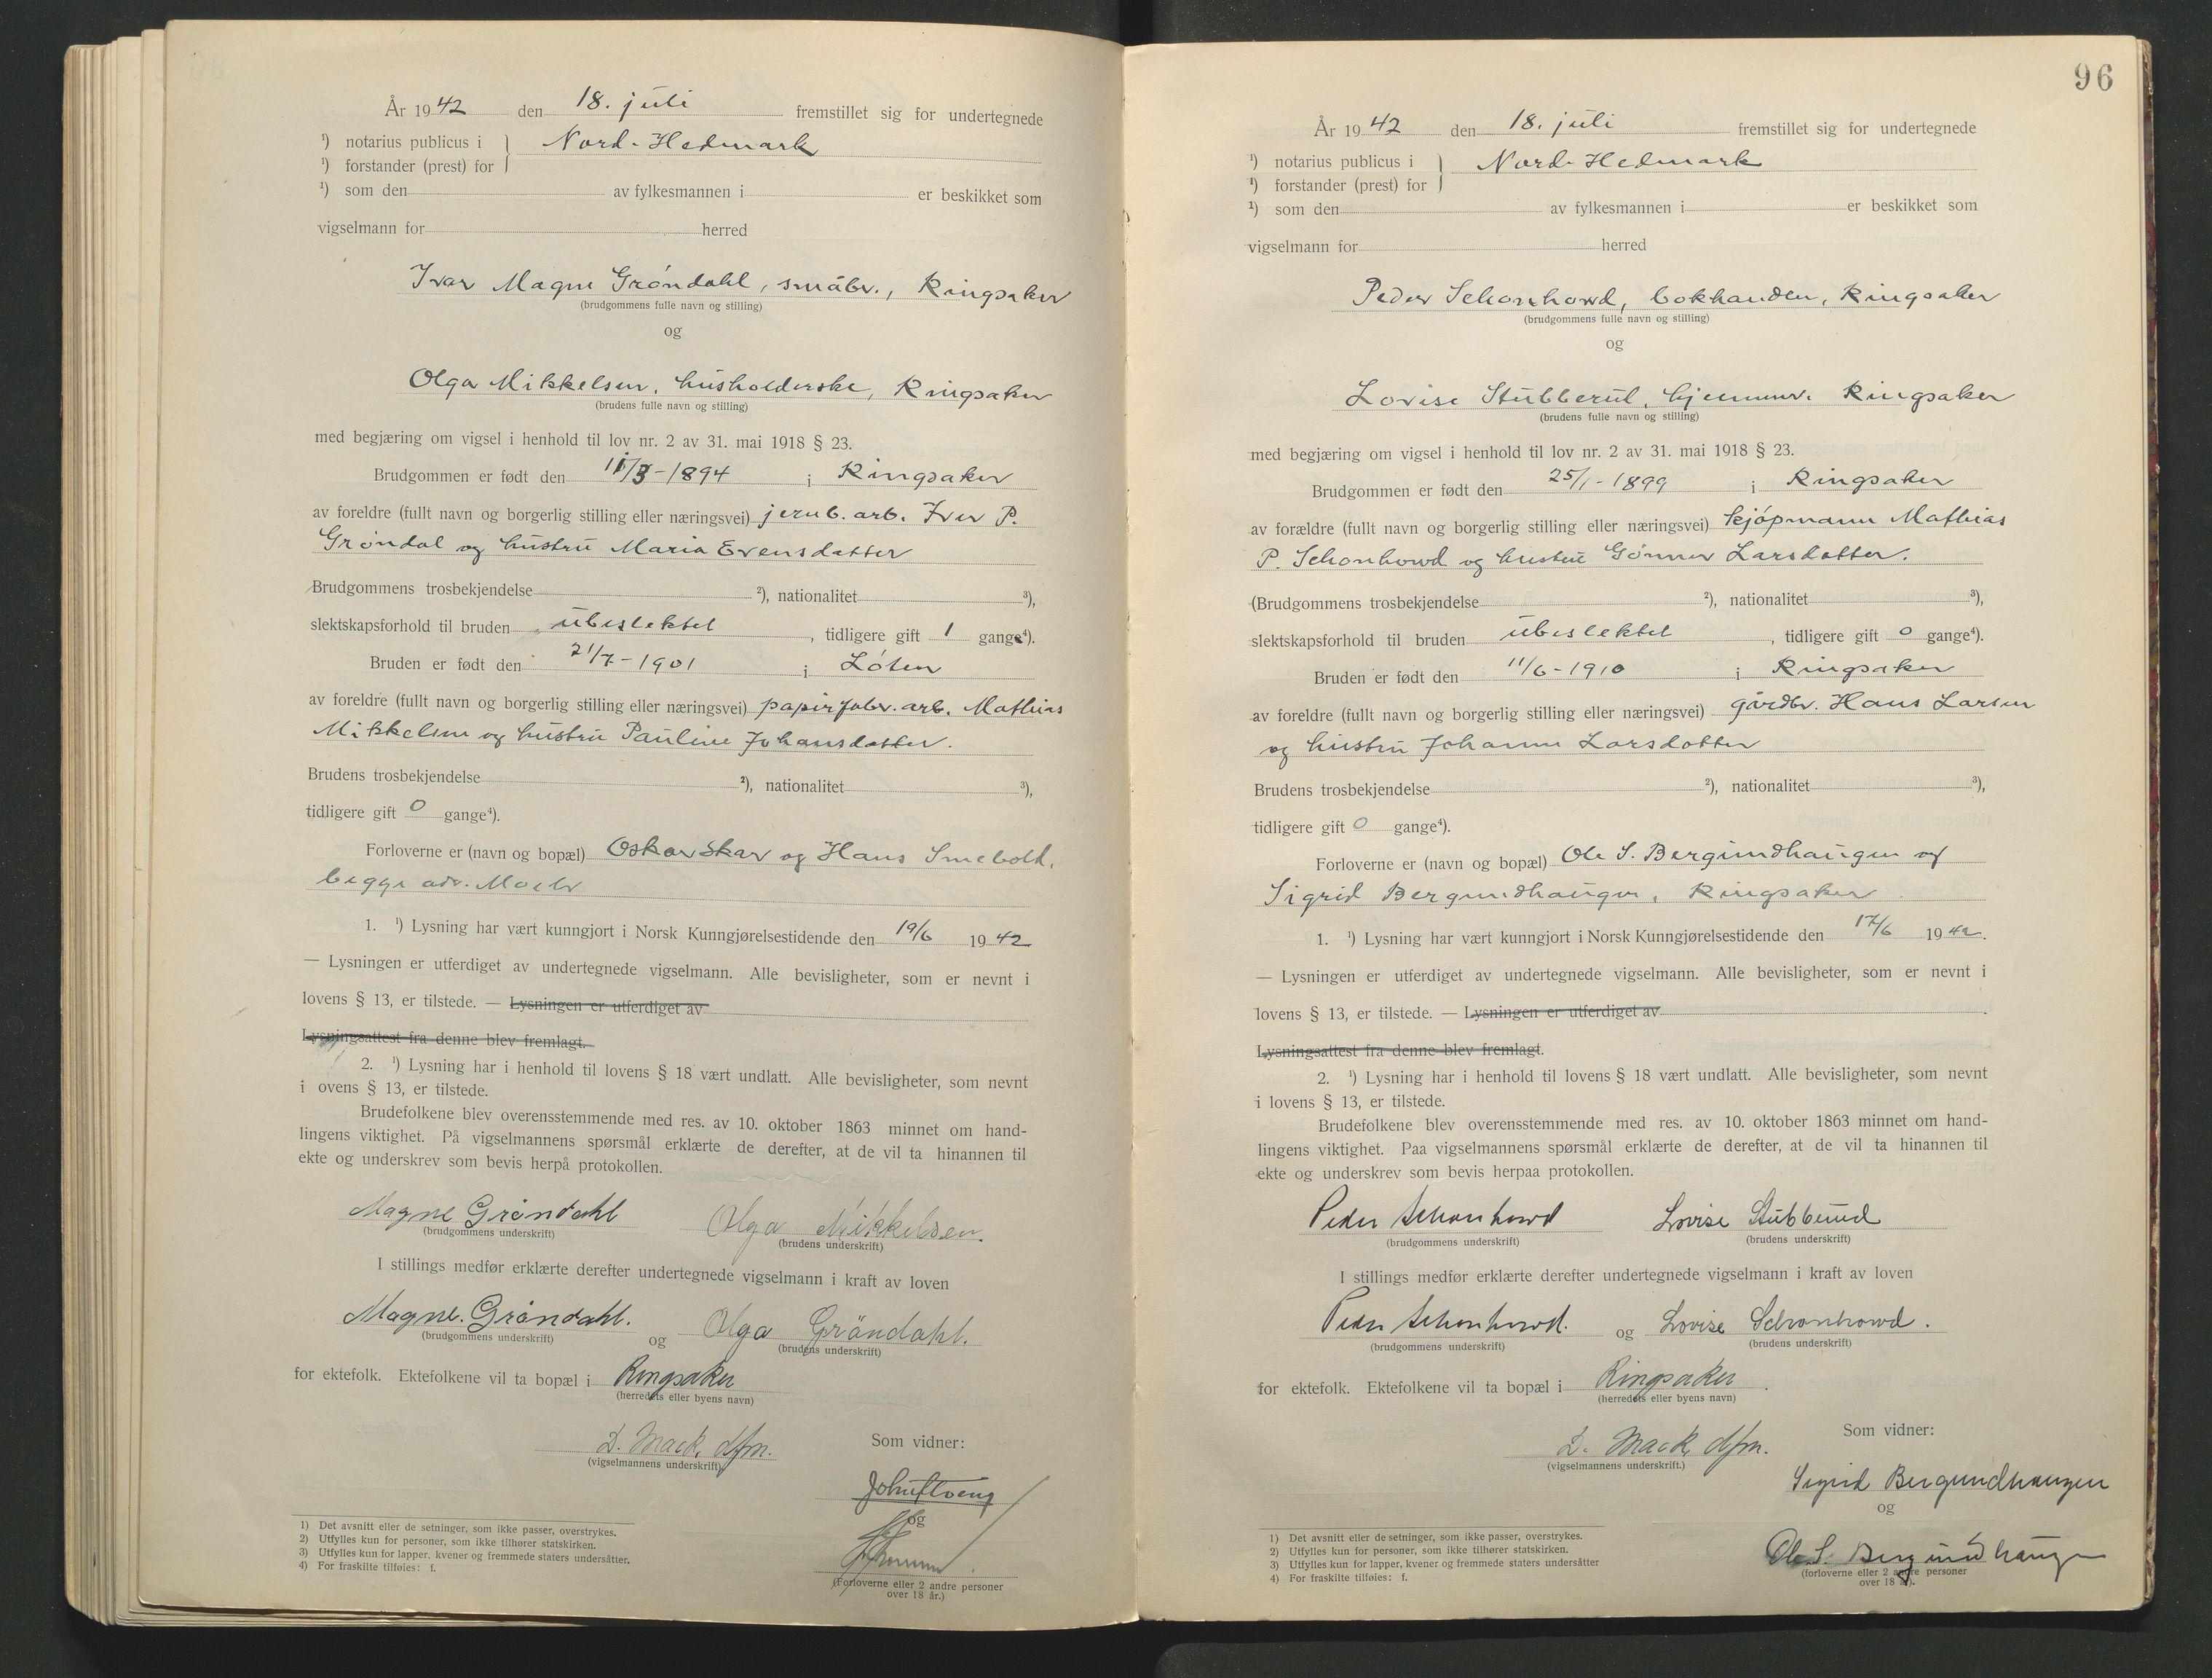 År 1942 den 18. juli fremstillet sig for undertegnede
¹) notarius publicus i } Nord-Hedmark
¹) forstander (prest) for
¹) som den av fylkesmannen i er beskikket som
vigselmann for herred
Ivar Magne Grøndahl, småbr., Ringsaker
(brudgommens fulle navn og stilling)
og
Olga Mikkelsen, husholderske, Ringsaker
(brudens fulle navn og stilling)
med begjæring om vigsel i henhold til lov nr. 2 av 31. mai 1918 § 23.
Brudgommen er født den 11/3-1894 i Ringsaker
av foreldre (fullt navn og borgerlig stilling eller næringsvei) jernb. arb. Iver P.
Grøndal og hustru Maria Evensdatter
Brudgommens trosbekjendelse ²), nationalitet ³),
slektskapsforhold til bruden ubeslektet, tidligere gift 1 gange⁴).
Bruden er født den 21/7-1901 i Løten
av foreldre (fullt navn og borgerlig stilling eller næringsvei) papirfabr. arb. Mathias
Mikkelsen og hustru Pauline Johansdatter.
Brudens trosbekjendelse ²), nationalitet ³),
tidligere gift 0 gange⁴).
Forloverne er (navn og bopæl) Oskar Skar og Hans Smebold,
begge adr. Moelv
1. ¹) Lysning har vært kunngjort i Norsk Kunngjørelsestidende den 19/6 1942
— Lysningen er utferdiget av undertegnede vigselmann. Alle bevisligheter, som er nevnt i
lovens § 13, er tilstede. — Lysningen er utferdiget av
Lysningsattest fra denne blev fremlagt.
2. ¹) Lysning har i henhold til lovens § 18 vært undlatt. Alle bevisligheter, som nevnt
i ovens § 13, er tilstede.
Brudefolkene blev overensstemmende med res. av 10. oktober 1863 minnet om hand-
lingens viktighet. På vigselmannens spørsmål erklærte de derefter, at de vil ta hinannen til
ekte og underskrev som bevis herpå protokollen.
Magne Grøndahl Olga Mikkelsen.
(brudgommens underskrift) (brudens underskrift)
I stillings medfør erklærte derefter undertegnede vigselmann i kraft av loven
Magne Grøndahl. og Olga Grøndahl.
(brudgommens underskrift) (brudens underskrift)
for ektefolk. Ektefolkene vil ta bopæl i Ringsaker
(herredets eller byens navn)
D. Mack, dfm. Som vidner:
(vigselmannens underskrift)
og
(Forloverne eller 2 andre personer
over 18 år.)
1) Det avsnitt eller de setninger, som ikke passer, overstrykes.
2) Utfylles kun for personer, som ikke tilhører statskirken.
3) Utfylles kun for lapper, kvener og fremmede staters undersåtter.
4) For fraskilte tilføies: f.
96
År 1942 den 18. juli fremstillet sig for undertegnede
¹) notarius publicus i } Nord-Hedmark
¹) forstander (prest) for
¹) som den av fylkesmannen i er beskikket som
vigselmann for herred
Peder Schonhowd, bokhandler, Ringsaker
(brudgommens fulle navn og stilling)
og
Lovise Stubberud, hjemmev. Ringsaker
(brudens fulle navn og stilling)
med begjæring om vigsel i henhold til lov nr. 2 av 31. mai 1918 § 23.
Brudgommen er født den 25/1-1899 i Ringsaker
av forældre (fullt navn og borgerlig stilling eller næringsvei) kjøpmann Mathias
P. Schonhowd og hustru Gønner Larsdatter.
(Brudgommens trosbekjendelse ²), nationalitet ³),
slektskapsforhold til bruden ubeslektet, tidligere gift 0 gange⁴).
Bruden er født den 11/6-1910 i Ringsaker
av foreldre (fullt navn og borgerlig stilling eller næringsvei) gårdbr. Hans Larsen
og hustru Johanne Larsdatter
Brudens trosbekjendelse ²), nationalitet ³),
tidligere gift 0 gange⁴).
Forloverne er (navn og bopæl) Ole S. Bergundhaugen og
Sigrid Bergundhaugen, Ringsaker
1. ¹) Lysning har vært kunngjort i Norsk Kunngjørelsestidende den 17/6 1942.
— Lysningen er utferdiget av undertegnede vigselmann. Alle bevisligheter, som er nevnt i
lovens § 13, er tilstede. — Lysningen er utferdiget av
Lysningsattest fra denne blev fremlagt.
2. ¹) Lysning har i henhold til lovens § 18 vært undlatt. Alle bevisligheter, som nevnt
i lovens § 13, er tilstede.
Brudefolkene blev overensstemmende med res. av 10. oktober 1863 minnet om hand-
lingens viktighet. Paa vigselmannens spørsmål erklærte de derefter, at de vil ta hinannen til
ekte og underskrev som bevis herpaa protokollen.
Peder Schonhowd Lovise Stubberud
(brudgommens underskrift) (brudens underskrift)
I stillings medfør erklærte derefter undertegnede vigselmann i kraft av loven
Peder Schonhowd. og Lovise Schonhowd.
(brudgommens underskrift) (brudens underskrift)
for ektefolk. Ektefolkene vil ta bopæl i Ringsaker.
(herredets eller byens navn)
D. Mack, dfm. Som vidner:
(vigselmannens underskrift.)
Sigrid Bergundhaugen
og
Ole S. Bergundhaugen
(forloverne eller 2 andre personer
over 18 år).
1) Det avsnitt eller de setninger, som ikke passer, overstrykes.
2) Utfylles kun for personer, som ikke tilhører statskirken.
3) Utfylles kun for lapper, kvener og fremmede staters undersåtter
4) For fraskilte tilføies: f.